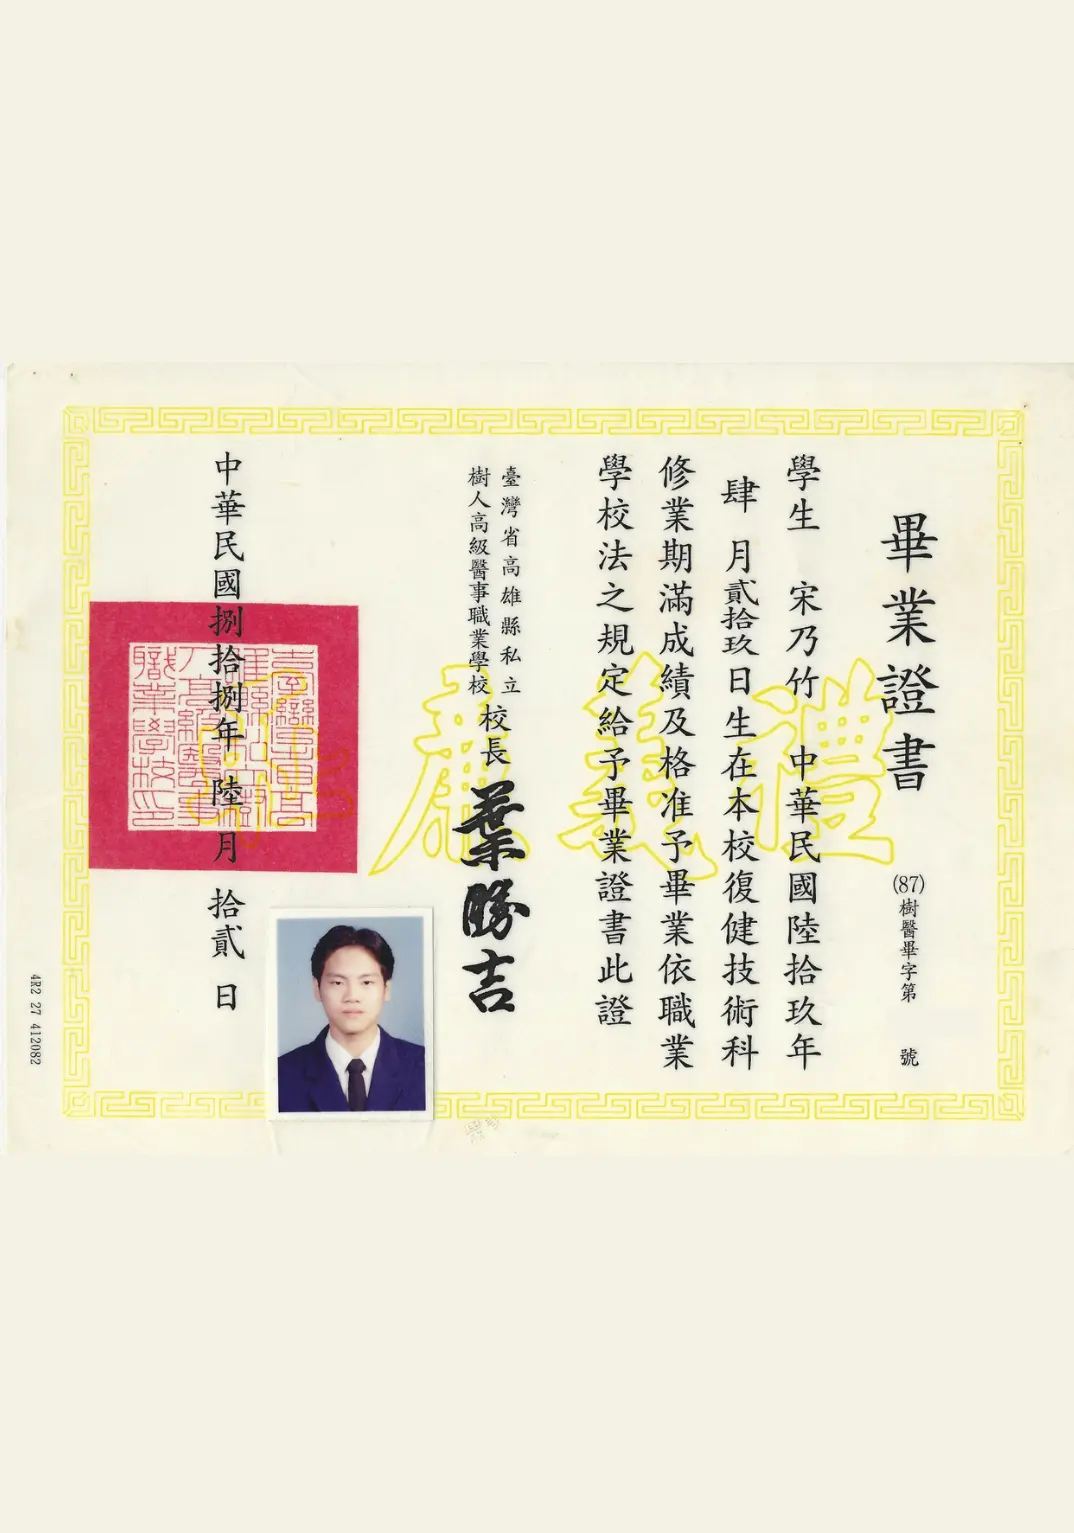 畢業證書
(87)樹醫畢字第 號
學生 宋乃竹 中華民國陸拾玖年
肆 月貳拾玖日生在本校復健技術科
修業期滿成績及格准予畢業依職業
學校法之規定給予畢業證書此證
臺灣省高雄縣私立
樹人高級醫事職業學校
校長 葉勝吉
中華民國捌拾捌年 陸 月 拾貳 日
禮義廉恥
4R2 27 412082